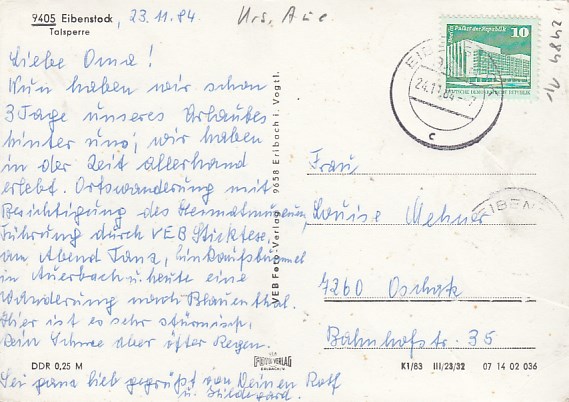 9405 Eibenstock, 23.11.84
Talsperre
Urs. Aue
Liebe Oma!
Nun haben wir schon
3 Tage unseres Urlaubes
hinter uns; wir haben
in der Zeit allerhand
erlebt. Ortswanderung mit
Besichtigung des Heimatmuseum,
Führung durch VEB Stickerei,
am Abend Tanz, Einkaufsbummel
in Auerbach u. heute eine
Wanderung nach Blauenthal.
Hier ist es sehr stürmisch,
kein Schnee aber öfter Regen.
Sei ganz lieb gegrüßt von Deinen Rolf
u. Hildegard.
DDR 0,25 M
VEB Foto-Verlag 9658 Erlbach i. Vogtl.
FOTO VERLAG
ERLBACH
Berlin Palast der Republik
10
DEUTSCHE DEMOKRATISCHE REPUBLIK
24.11.84
c
EIBEN
Frau
Louise Mehner
7260 Oschatz
Bahnhofstr. 35
K1/83 III/23/32 07 14 02 036